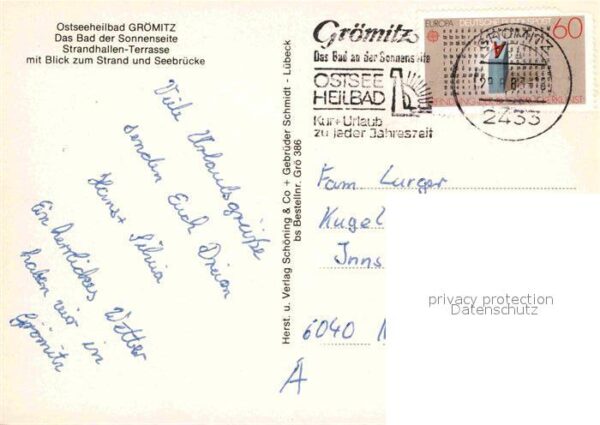 Ostseeheilbad GRÖMITZ
Das Bad der Sonnenseite
Strandhallen-Terrasse
mit Blick zum Strand und Seebrücke
Viele Urlaubsgrüße
senden Euch Dreien
Hans + Silvia
Ein herrliches Wetter
haben wir in
Grömitz
Herst. u. Verlag Schöning & Co + Gebrüder Schmidt - Lübeck
bs Bestellnr. Grö 386
Grömitz
Das Bad an der Sonnenseite
OSTSEE
HEILBAD
Kur + Urlaub
zu jeder Jahreszeit
EUROPA DEUTSCHE BUNDESPOST 60
GRÖMITZ
2433
Fam Lurger
Kugel
Inns
6040
A
privacy protection
Datenschutz